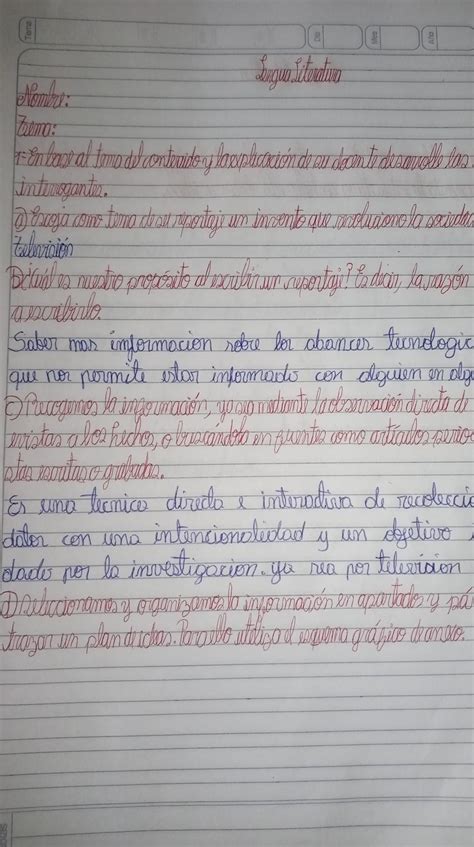 Tema
Día
Mes
Año
Lengua Literatura
Nombre:
Tema:
1- En base al tema del contenido y la explicación de su docente desarrolle las
interrogantes.
a) Escoja como tema de su reportaje un invento que revoluciono la sociedad
Televisión
b) Cuál es nuestro propósito al escribir un reportaje? Es decir, la razón
a escribirlo.
Saber mas informacion sobre los abances tecnologic
que nos permite estar informado con alguien en alg
c) Recogemos la información, ya sea mediante la observación directa d
evistas a los hechos, o buscándola en fuentes como artículos perio
stas escritas o grabadas.
Es una tecnica directa e interactiva de recolecció
datos con una intencionalidad y un objetivo
dado por la investigacion. ya sea por television
d) Seleccionamos y organizamos la información en apartados y pá
trazar un plan de ideas. Para ello utiliza el esquema gráfico de anexo.